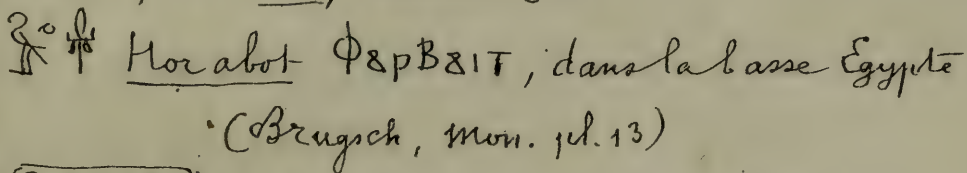 Horabot ⲪⲁⲣⲂⲁⲓⲦ, dans la basse Égypte
(Brugsch, mon. pl. 13)